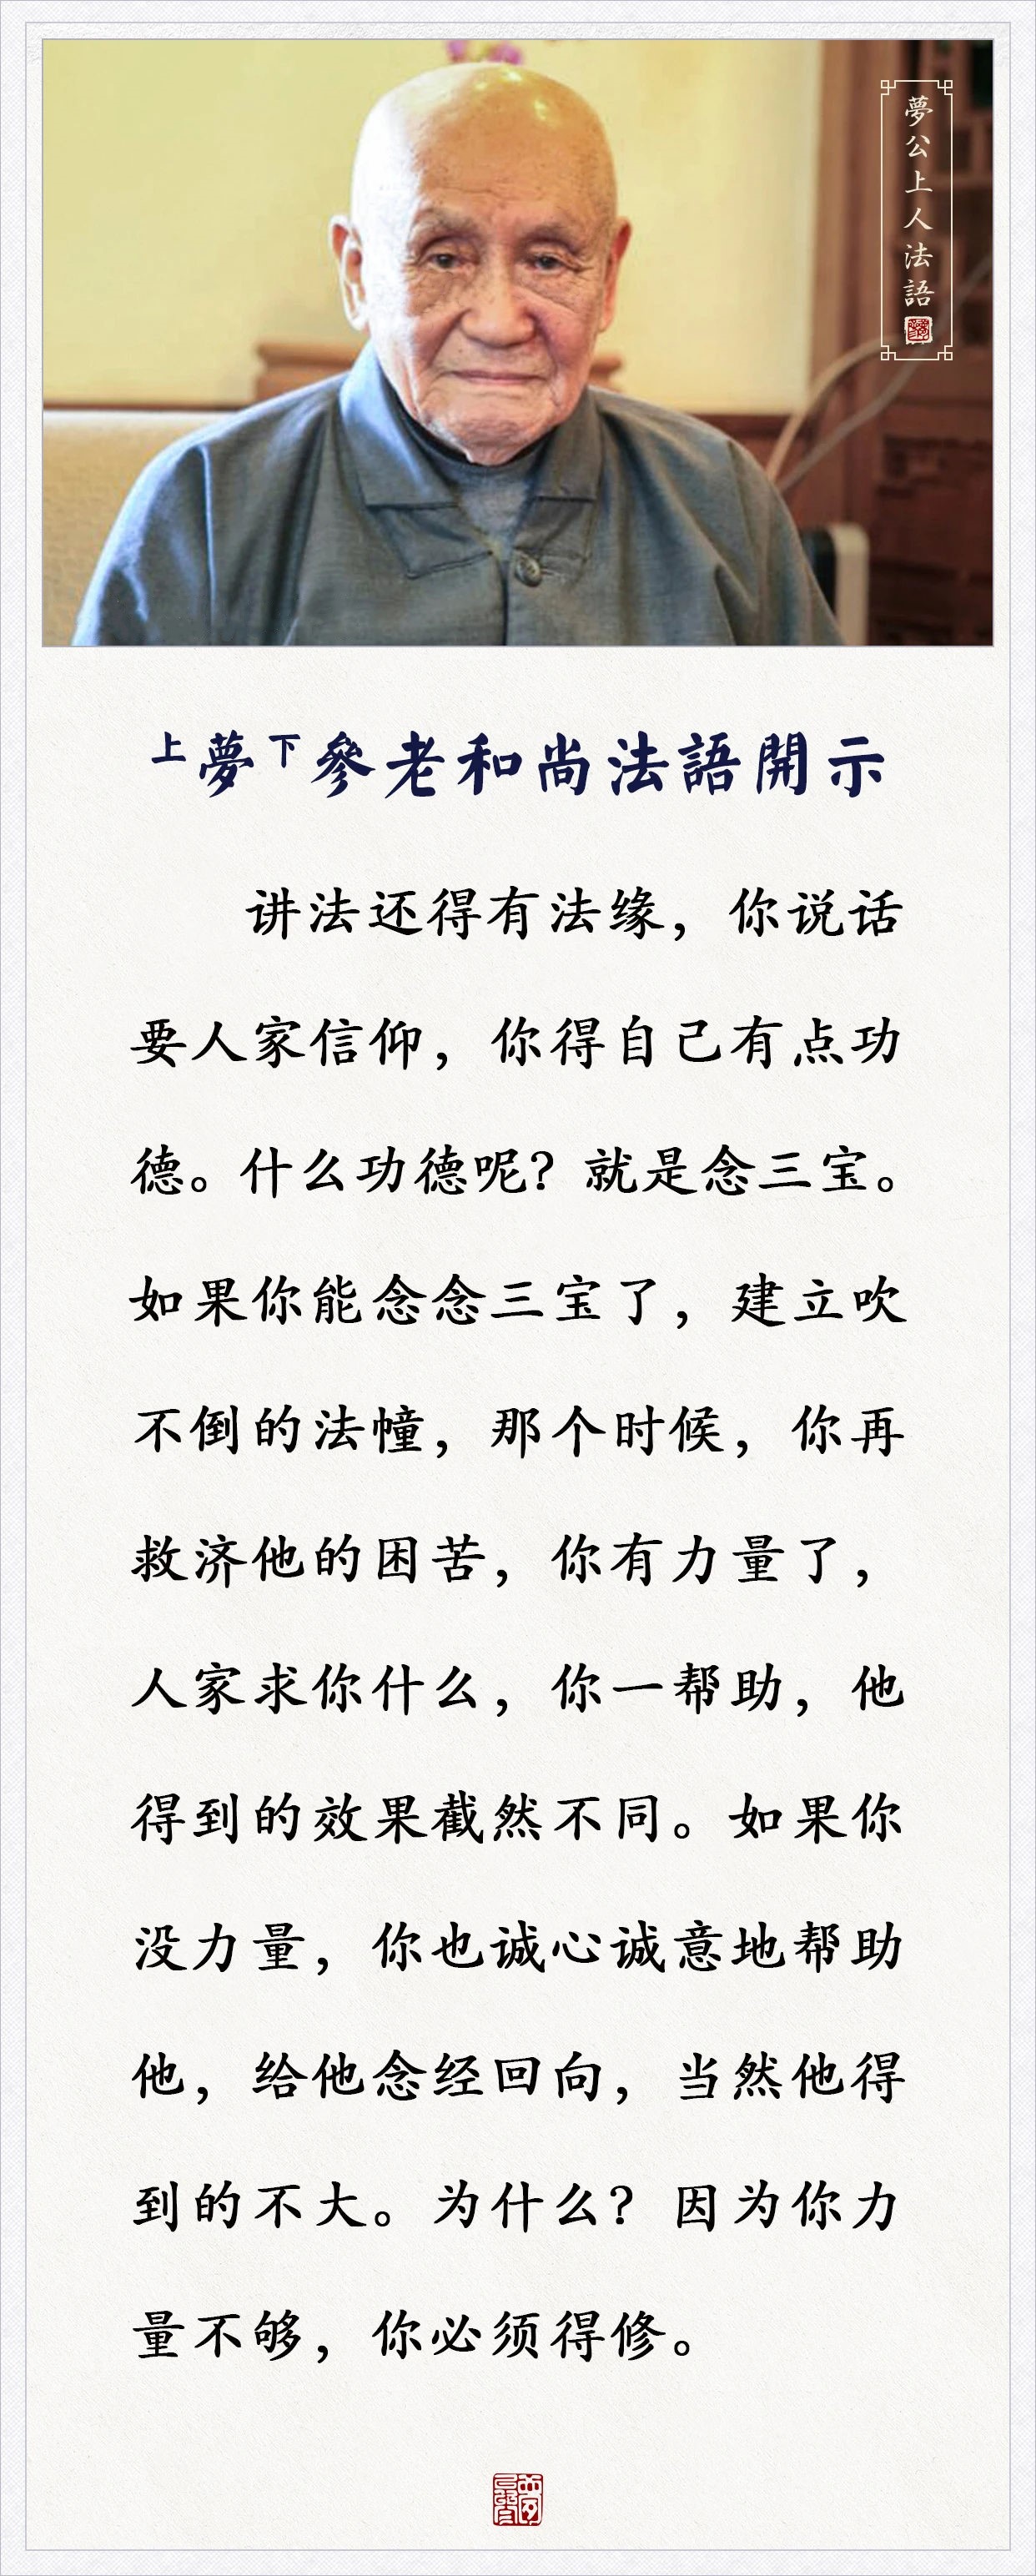 夢公上人法語
上夢下參老和尚法語開示
讲法还得有法缘，你说话
要人家信仰，你得自己有点功
德。什么功德呢？就是念三宝。
如果你能念念三宝了，建立吹
不倒的法幢，那个时候，你再
救济他的困苦，你有力量了，
人家求你什么，你一帮助，他
得到的效果截然不同。如果你
没力量，你也诚心诚意地帮助
他，给他念经回向，当然他得
到的不大。为什么？因为你力
量不够，你必须得修。